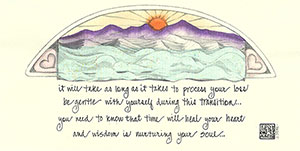 it will take as long as it takes to process your loss
be gentle with yourself during this transition...
you need to know that time will heal your heart
and wisdom is nurturing your soul...